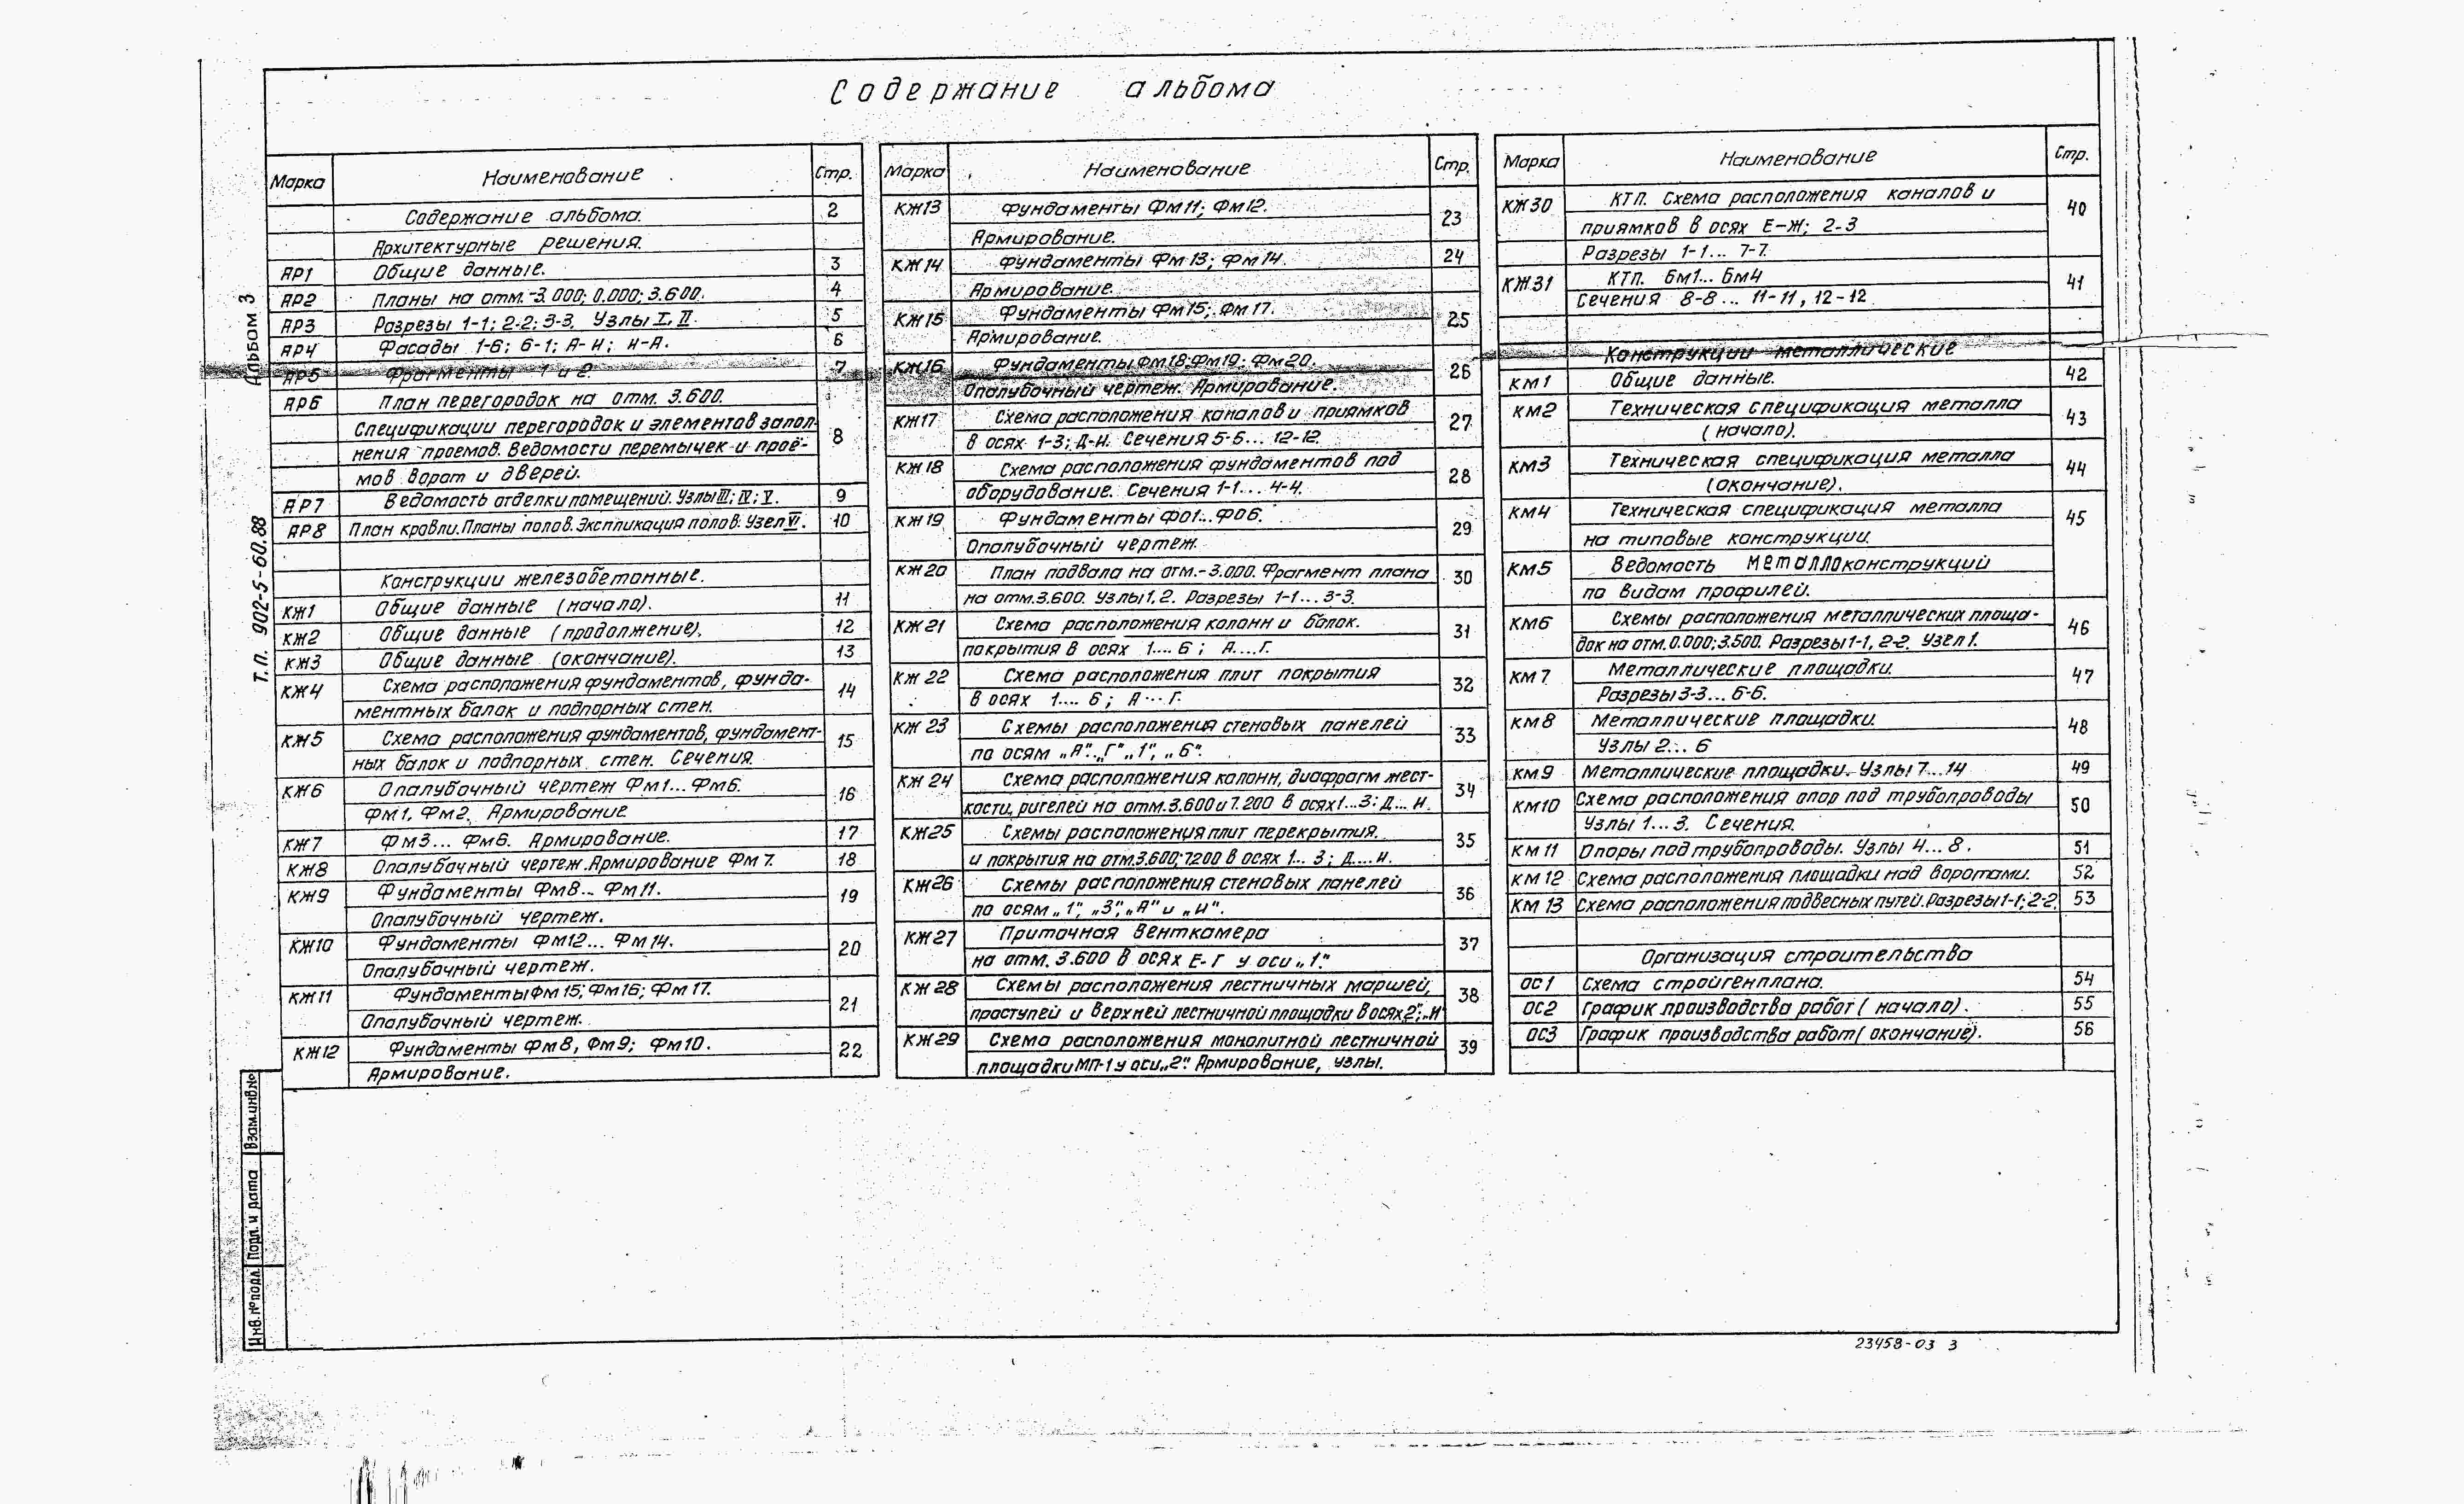 Содержание альбома
Альбом 3
Т.П. 902-5-60.88
Марка Наименование Стр.
Содержание альбома. 2
Архитектурные решения.
АР1 Общие данные. 3
АР2 Планы на отм.-3.000; 0.000; 3.600. 4
АР3 Разрезы 1-1; 2-2; 3-3. Узлы I, II. 5
АР4 Фасады 1-6; 6-1; А-И; И-А. 6
АР5 Фрагменты 1 и 2. 7
АР6 План перегородок на отм. 3.600. 8
Спецификации перегородок и элементов запол-
нения проемов. Ведомости перемычек и проё-
мов ворот и дверей.
АР7 Ведомость отделки помещений. Узлы III; IV; V. 9
АР8 План кровли. Планы полов. Экспликация полов. Узел VI. 10
Конструкции железобетонные.
КЖ1 Общие данные (начало). 11
КЖ2 Общие данные (продолжение). 12
КЖ3 Общие данные (окончание). 13
КЖ4 Схема расположения фундаментов, фунда- 14
ментных балок и подпорных стен.
КЖ5 Схема расположения фундаментов, фундамент- 15
ных балок и подпорных стен. Сечения.
КЖ6 Опалубочный чертеж Фм1... Фм6. 16
Фм1, Фм2. Армирование
КЖ7 Фм3... Фм6. Армирование. 17
КЖ8 Опалубочный чертеж. Армирование Фм7. 18
КЖ9 Фундаменты Фм8... Фм11. 19
Опалубочный чертеж.
КЖ10 Фундаменты Фм12... Фм14. 20
Опалубочный чертеж.
КЖ11 Фундаменты Фм15; Фм16; Фм17. 21
Опалубочный чертеж.
КЖ12 Фундаменты Фм8, Фм9; Фм10. 22
Армирование.
Марка Наименование Стр.
КЖ13 Фундаменты Фм11; Фм12. 23
Армирование.
КЖ14 Фундаменты Фм13; Фм14. 24
Армирование.
КЖ15 Фундаменты Фм15; Фм17. 25
Армирование.
КЖ16 Фундаменты Фм18; Фм19; Фм20. 26
Опалубочный чертеж. Армирование.
КЖ17 Схема расположения каналов и приямков 27
в осях 1-3; Д-И. Сечения 5-5... 12-12.
КЖ18 Схема расположения фундаментов под 28
оборудование. Сечения 1-1... 4-4.
КЖ19 Фундаменты ФО1... ФО6. 29
Опалубочный чертеж.
КЖ20 План подвала на отм.-3.000. Фрагмент плана 30
на отм.3.600. Узлы 1, 2. Разрезы 1-1... 3-3.
КЖ21 Схема расположения колонн и балок. 31
покрытия в осях 1.... 6; А....Г.
КЖ22 Схема расположения плит покрытия 32
в осях 1.... 6; А... Г.
КЖ23 Схемы расположения стеновых панелей 33
по осям „А", „Г" „1", „6".
КЖ24 Схема расположения колонн, диафрагм жест- 34
кости, ригелей на отм.3.600 и 7.200 в осях 1...3; Д... И.
КЖ25 Схемы расположения плит перекрытия. 35
и покрытия на отм.3.600; 7.200 в осях 1... 3; Д....И.
КЖ26 Схемы расположения стеновых панелей 36
по осям „1", „3", „А" и „И".
КЖ27 Приточная венткамера 37
на отм. 3.600 в осях Е-Г у оси „1".
КЖ28 Схемы расположения лестничных маршей, 38
проступей и верхней лестничной площадки в осях 2"; „И"
КЖ29 Схема расположения монолитной лестничной 39
площадки МП-1 у оси „2". Армирование, узлы.
Марка Наименование Стр.
КЖ30 КТП. Схема расположения каналов и 40
приямков в осях Е-Ж; 2-3
Разрезы 1-1... 7-7.
КЖ31 КТП. Бм1... Бм4 41
Сечения 8-8... 11-11, 12-12
Конструкции металлические
КМ1 Общие данные. 42
КМ2 Техническая спецификация металла 43
(начало).
КМ3 Техническая спецификация металла 44
(окончание).
КМ4 Техническая спецификация металла 45
на типовые конструкции.
КМ5 Ведомость металлоконструкций
по видам профилей.
КМ6 Схемы расположения металлических площа- 46
док на отм. 0.000; 3.500. Разрезы 1-1, 2-2. Узел 1.
КМ7 Металлические площадки. 47
Разрезы 3-3... 6-6.
КМ8 Металлические площадки. 48
Узлы 2... 6
КМ9 Металлические площадки. Узлы 7...14 49
КМ10 Схема расположения опор под трубопроводы 50
Узлы 1... 3. Сечения.
КМ11 Опоры под трубопроводы. Узлы 4... 8. 51
КМ12 Схема расположения площадки над воротами. 52
КМ13 Схема расположения подвесных путей. Разрезы 1-1; 2-2. 53
Организация строительства
ОС1 Схема стройгенплана. 54
ОС2 График производства работ (начало). 55
ОС3 График производства работ (окончание). 56
Взам.инв.№
Подп. и дата
Инв.№подл.
23458-03 3